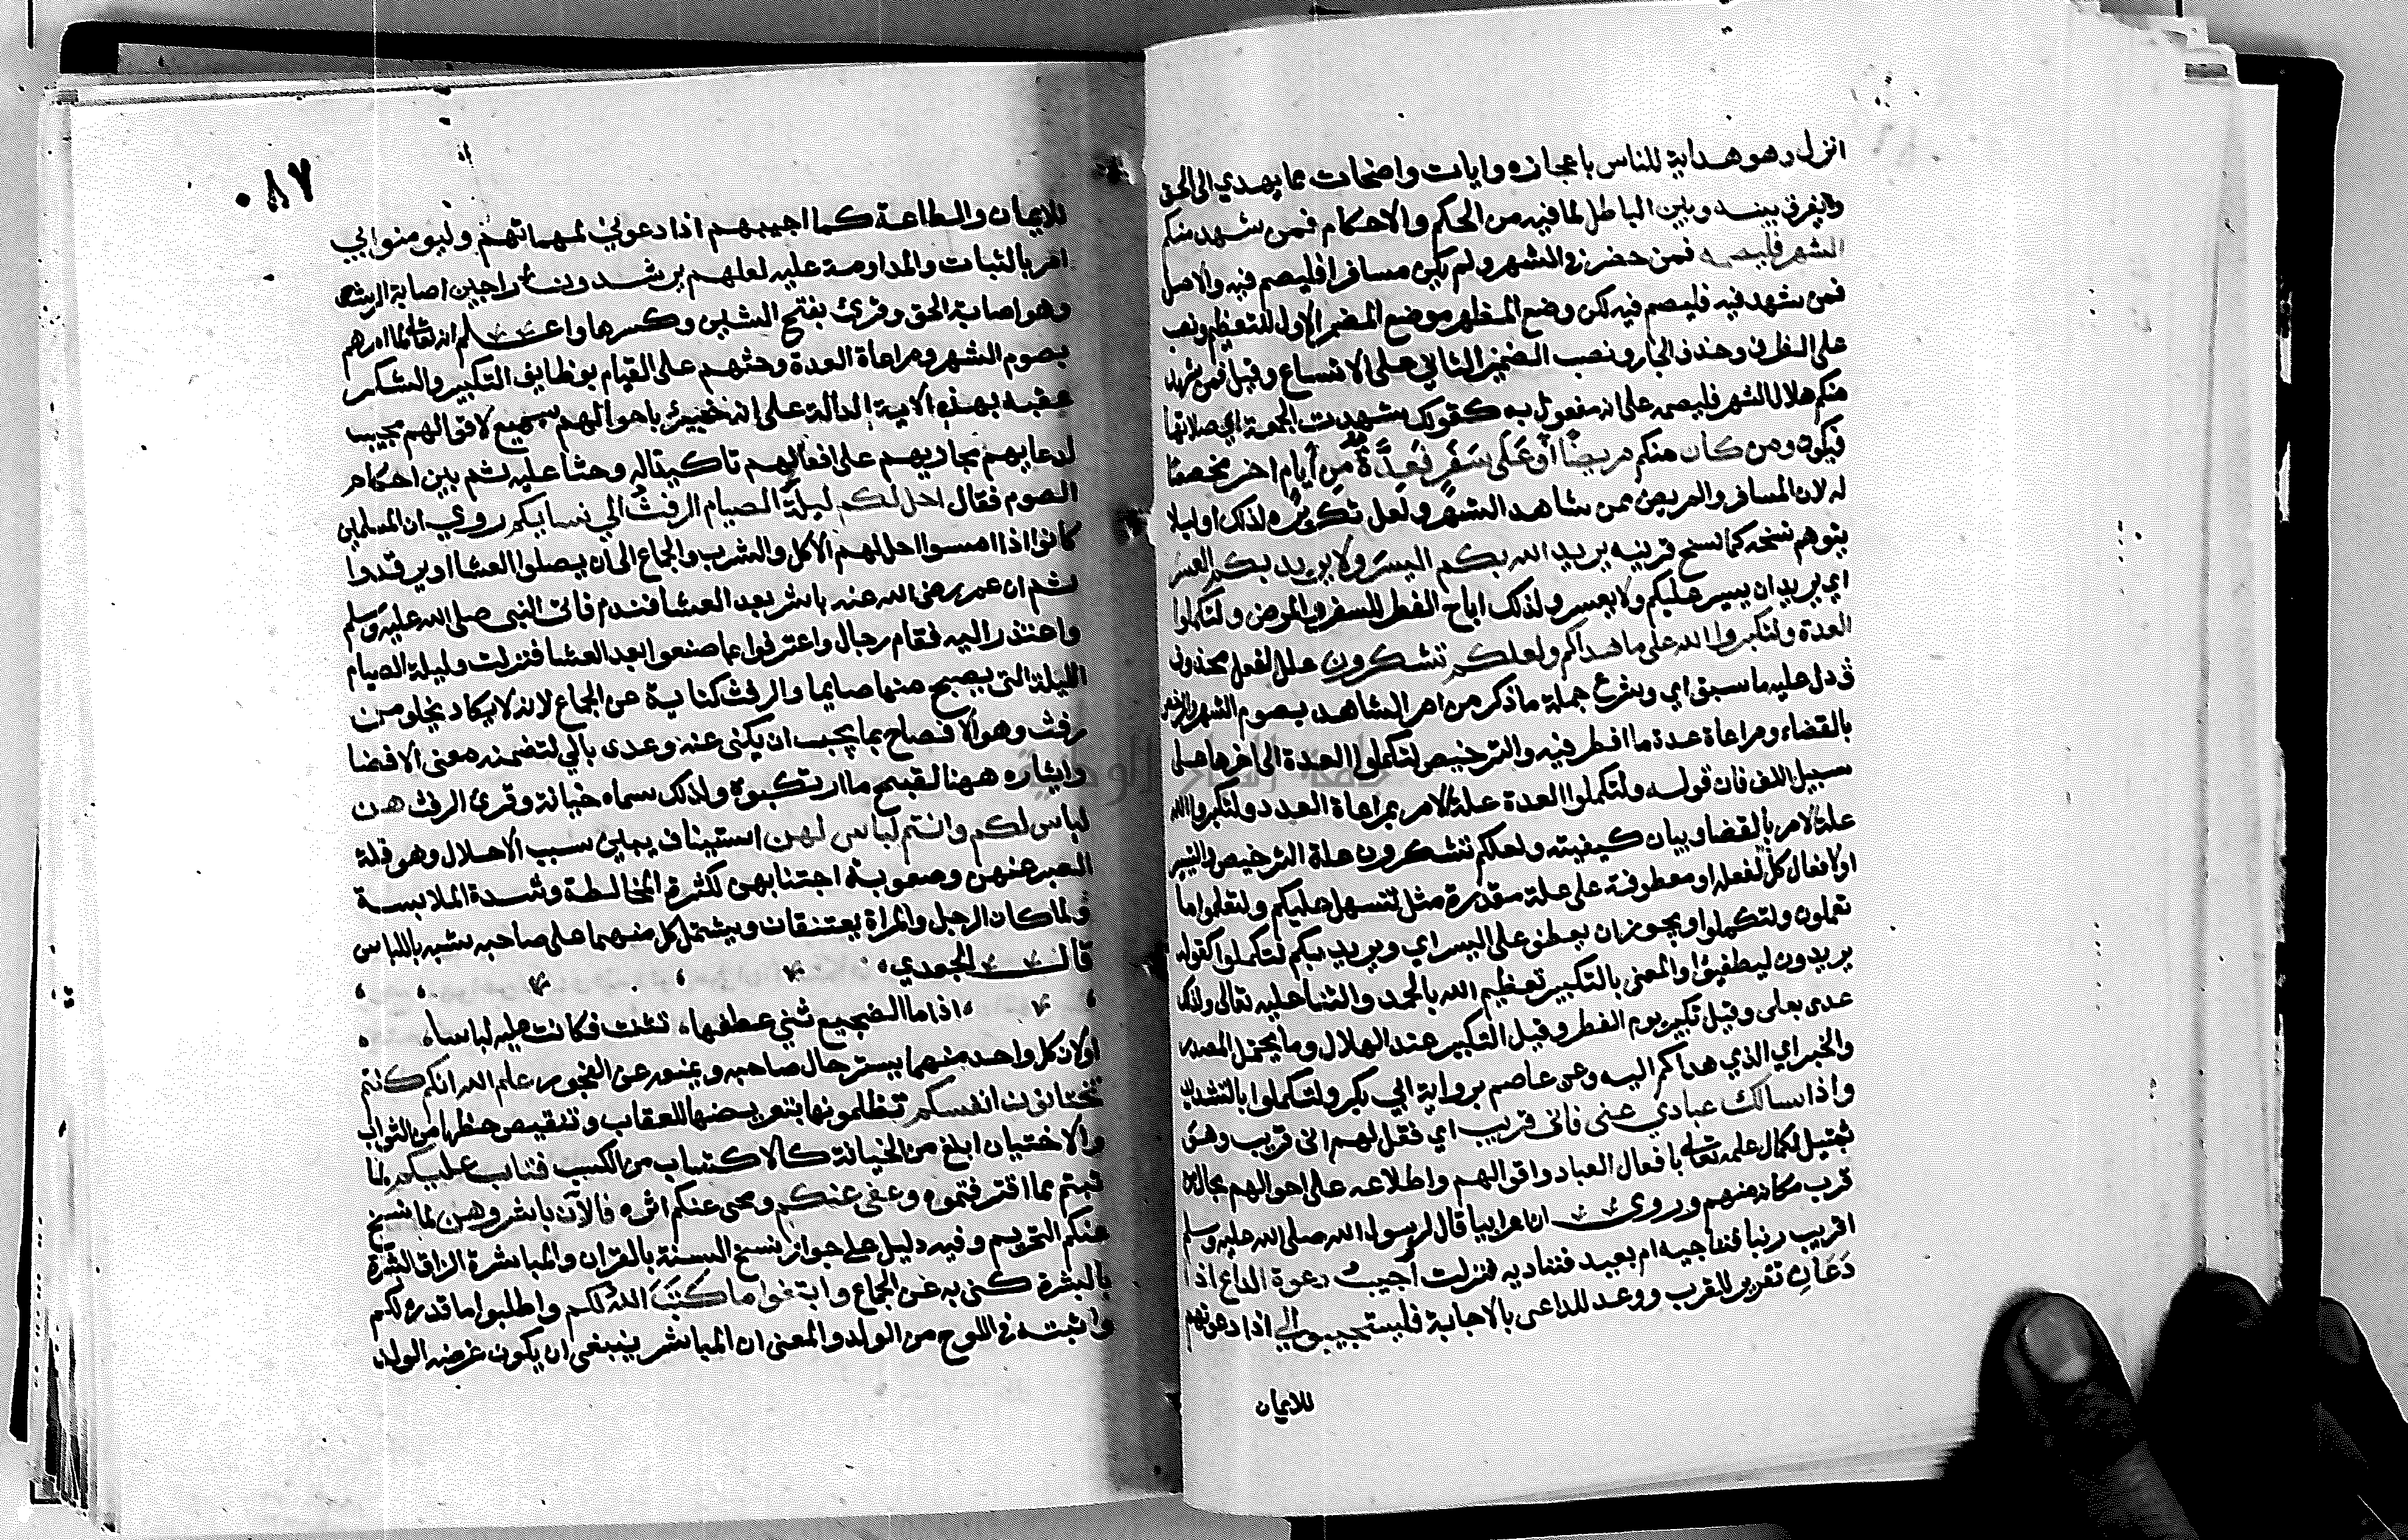 انزل وهو هداية للناس باعجازه وايات واضحات مما يهدي الى الحق
ويفرق بينه وبين الباطل لما فيه من الحكم والاحكام فمن شهد منكم
الشهر فليصمه فمن حضر في الشهر ولم يكن مسافرا فليصم فيه والاصل
فمن شهد فيه فليصم فيه لكن وضع المظهر موضع المضمر الاول للتعظيم ونصب
على الظرف وحذف الجار ونصب الضمير الثاني على الاتساع وقيل فمن شهد
منكم هلال الشهر فليصمه على انه مفعول به كقولك شهدت الجمعة اي صلاتها
فيكون ومن كان منكم مريضًا أوْ عَلَى سَفَرٍ فَعِدَّةٌ مِن أيام اخر مخصصا
له لان المسافر والمريض ممن شاهد الشهر ولعل تكريره لذلك او ليلا
يتوهم نسخه كما نسخ قرينه يريد الله بكم اليسر ولا يريد بكم العسر
اي يريد ان ييسر عليكم ولا يعسر ولذلك اباح الفطر للسفر والمرض ولتكملوا
العدة ولتكبروا الله على ما هداكم ولعلكم تشكرون علل لفعل محذوف
دل عليه ما سبق اي وشرع جملة ما ذكر من امر الشاهد بصوم الشهر
بالقضاء ومراعاة عدة ما افطر فيه والترخيص لتكملوا العدة الى اخرها على
سبيل اللف فان قوله ولتكملوا العدة علة الامر بمراعاة العدد ولتكبروا الله
علة الامر بالقضا وبيان كيفيته ولعلكم تشكرون علة الترخيص والتيسير
او لافعال كل لفعله او معطوفة على علة مقدرة مثل لتسهل عليكم ولتعلموا ما
تعملون ولتكملوا ويجوز ان يعطف على اليسر اي ويريد بكم لتكملوا كقوله
يريدون ليطفئوا والمعنى بالتكبير تعظيم الله بالحمد والثنا عليه تعالى ولذلك
عدى بعلى وقيل تكبير يوم الفطر وقيل التكبير عند الهلال وما يحتمل المصدر
والخبر اي الذي هداكم اليه وعن عاصم برواية ابي بكر ولتكملوا بالتشديد
واذا سالك عبادي عني فاني قريب اي فقل لهم اني قريب وهو
تمثيل لكمال علمه تعالى بافعال العباد واقوالهم واطلاعه على احوالهم بحال من
قرب مكانه منهم وروي ان اعرابيا قال لرسول الله صلى الله عليه وسلم
اقريب ربنا فنناجيه ام بعيد فنناديه فنزلت أجيبُ دعوة الداع اذا
دَعَانِ تقرير للقرب ووعد للداعي بالاجابة فليستجيبوا لي اذا دعوتهم
للايمان
٠٨٧
للايمان والطاعة كما اجيبهم اذا دعوني لمهماتهم وليومنوا بي
امر بالثبات والمداومة عليه لعلهم يرشدون راجين اصابة الرشد
وهو اصابة الحق وقرئ بفتح الشين وكسرها واعلم انه تعالى لما امرهم
بصوم الشهر ومراعاة العدة وحثهم على القيام بوظايف التكبير والشكر
عقبه بهذه الاية الدالة على انه خبير باحوالهم سميع لاقوالهم مجيب
لدعايهم مجازيهم على افعالهم تاكيدا له وحثا عليه ثم بين احكام
الصوم فقال احل لكم ليلة الصيام الرفث الى نسايكم روي ان المسلمين
كانوا اذا امسوا احل لهم الأكل والشرب والجماع الى ان يصلوا العشا او يرقدوا
ثم ان عمر رضي الله عنه باشر بعد العشا فندم فاتى النبي صلى الله عليه وسلم
واعتذر اليه فقام رجال واعترفوا بما صنعوا بعد العشا فنزلت وليلة الصيام
الليلة التي يصبح منها صايما والرفث كناية عن الجماع لانه لا يكاد يخلو من
رفث وهو الافصاح بما يجب ان يكنى عنه وعدى بالى لتضمنه معنى الافضا
وايثاره ههنا لقبح ما ارتكبوه ولذلك سماه خيانة وقرئ الرفث هن
لباس لكم وانتم لباس لهن استيناف يبين سبب الاحلال وهو قلة
الصبر عنهن وصعوبة اجتنابهن لكثرة المخالطة وشدة الملابسة
ولما كان الرجل والمراة يعتنقان ويشتمل كل منهما على صاحبه شبه باللباس
قال الجعدي
اذا ما الضجيع ثنى عطفها، تثنت فكانت عليه لباسا
او لان كل واحد منهما يستر حال صاحبه ويمنعه عن الفجور علم الله انكم كنتم
تختانون انفسكم تظلمونها بتعريضها للعقاب وتنقيص حظها من الثواب
والاختيان ابلغ من الخيانة كالاكتساب من الكسب فتاب عليكم لما
تبتم مما اقترفتموه وعفى عنكم ومحى عنكم اثره فالآن باشروهن لما نسخ
عنكم التحريم وفيه دليل على جواز نسخ السنة بالقران والمباشرة الزاق البشرة
بالبشرة كنى به عن الجماع وابتغوا ما كَتَبَ اللهُ لكم واطلبوا ما قدره لكم
واثبته في اللوح من الولد والمعنى ان المباشر ينبغي ان يكون غرضه الولد